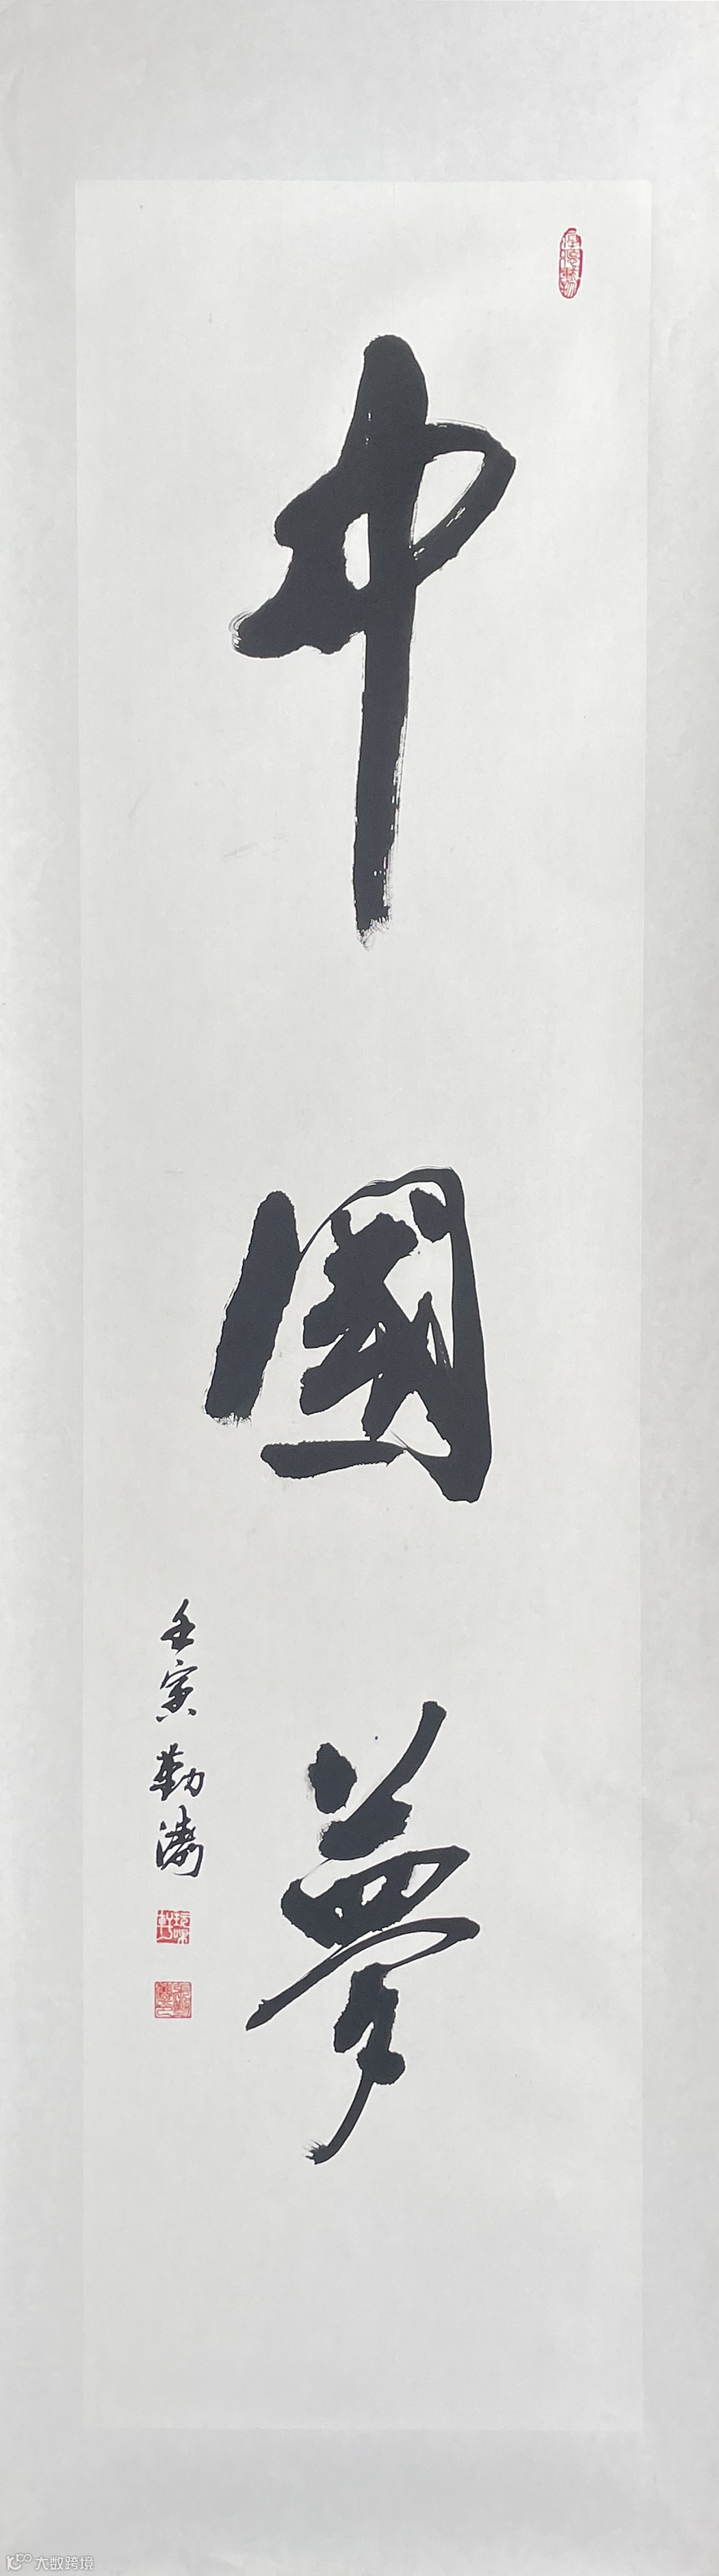 中國夢
壬寅 勤濤
大数跨境